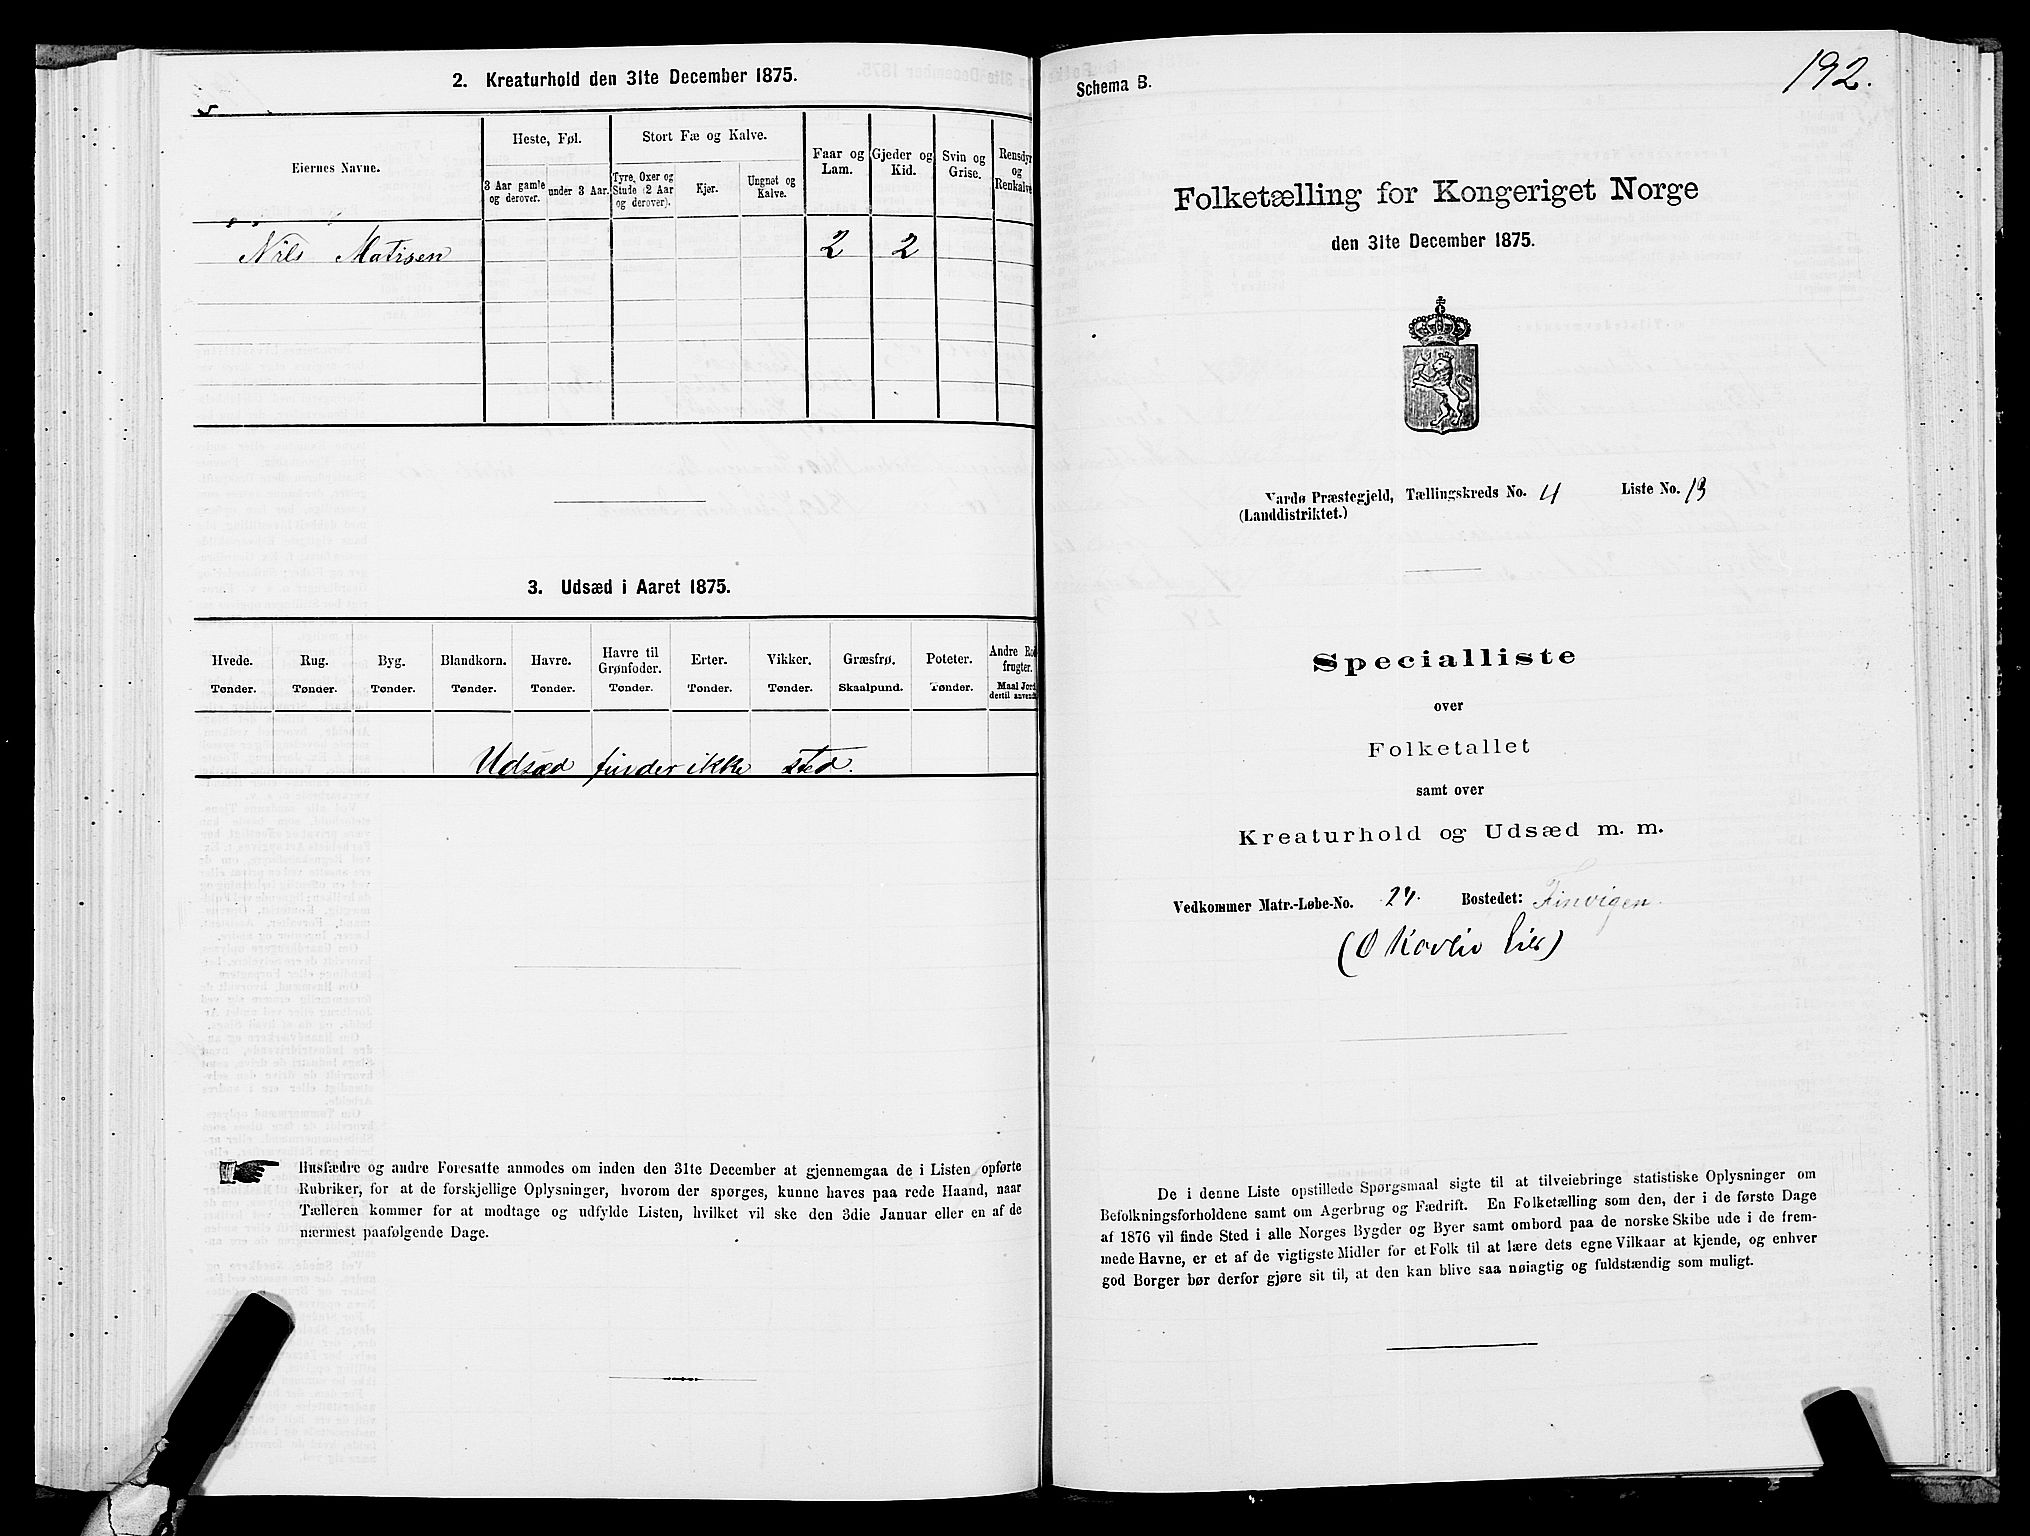 2. Kreaturhold den 31te December 1875.
Eiernes Navne.
Heste, Føl.
Stort Fæ og Kalve.
Faar og Lam.
Gjeder og Kid.
Svin og Grise.
Rensdyr og Renkalve
3 Aar gamle og derover.
under 3 Aar.
Tyre, Oxer og Stude (2 Aar og derover).
Kjør.
Ungnøt og Kalve.
Nils Matisen 2 2
3. Udsæd i Aaret 1875.
Hvede. Rug. Byg. Blandkorn. Havre. Havre til Grønfoder. Erter. Vikker. Græsfrø. Poteter. Andre Rod frugter.
Tønder. Tønder. Tønder. Tønder. Tønder. Tønder. Tønder. Tønder. Skaalpund. Tønder. Maal Jord dertil anvendt
Udsæd finder ikke sted.
Husfædre og andre Foresatte anmodes om inden den 31te December at gjennemgaa de i Listen opførte
Rubriker, for at de forskjellige Oplysninger, hvorom der spørges, kunne haves paa rede Haand, naar
Tælleren kommer for at modtage og udfylde Listen, hvilket vil ske den 3die Januar eller en af de
nærmest paafølgende Dage.
192.
Schema B.
Folketælling for Kongeriget Norge
den 31te December 1875.
Vardø Præstegjeld, Tællingskreds No. 4 Liste No. 13
(Landdistriktet.)
Specialliste
over
Folketallet
samt over
Kreaturhold og Udsæd m. m.
Vedkommer Matr.-Løbe-No. 24. Bostedet: Finvigen.
De i denne Liste opstillede Spørgsmaal sigte til at tilveiebringe statistiske Oplysninger om
Befolkningsforholdene samt om Agerbrug og Fædrift. En Folketælling som den, der i de første Dage
af 1876 vil finde Sted i alle Norges Bygder og Byer samt ombord paa de norske Skibe ude i de frem-
mede Havne, er et af de vigtigste Midler for et Folk til at lære dets egne Vilkaar at kjende, og enhver
god Borger bør derfor gjøre sit til, at den kan blive saa nøiagtig og fuldstændig som muligt.